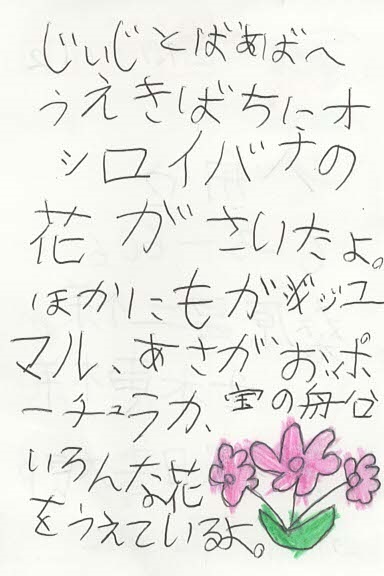 じいじとばあばへ
うえきばちにオ
シロイバナの
花がさいたよ。
ほかにもガジュ
マル、あさがお、ポ
ーチュラカ、宝の船
いろんな花
をうえているよ。